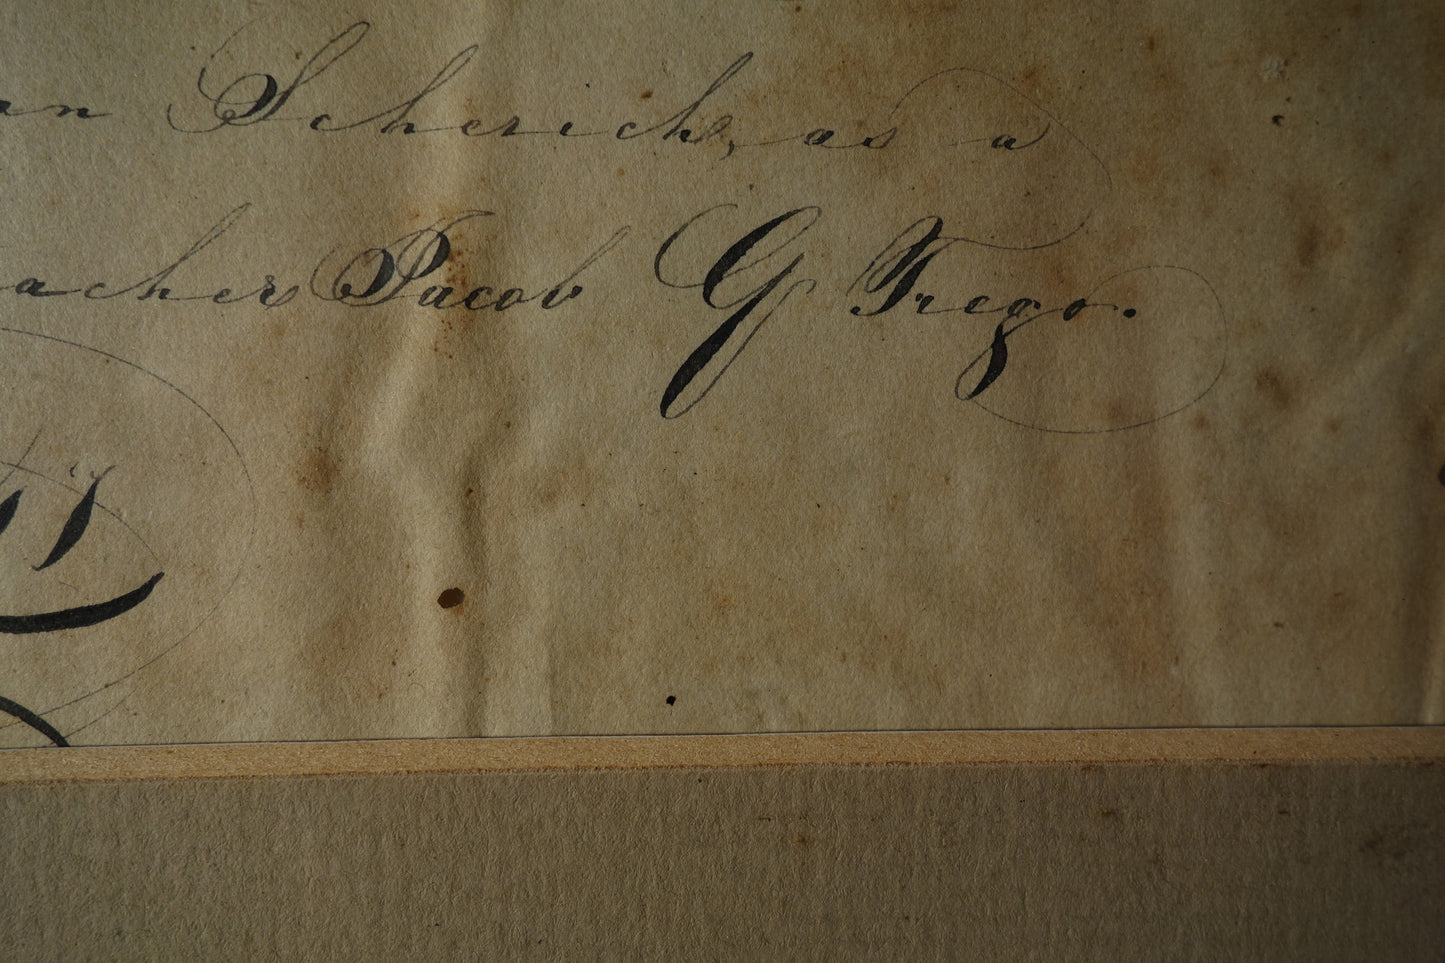 an Scherich, as a
acher Jacob G Trego.